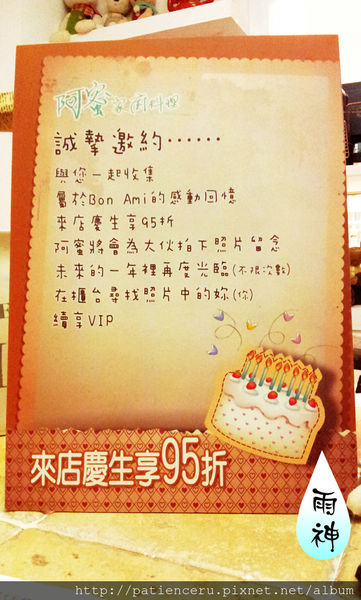 阿蜜家廚料理
誠摯邀約……
與您一起收集
屬於Bon Ami的感動回憶
來店慶生享95折
阿蜜將會為大伙拍下照片留念
未來的一年裡再度光臨(不限次數)
在櫃台尋找照片中的妳(你)
續享VIP
來店慶生享95折
雨神
http://patienceru.pixnet.net/album